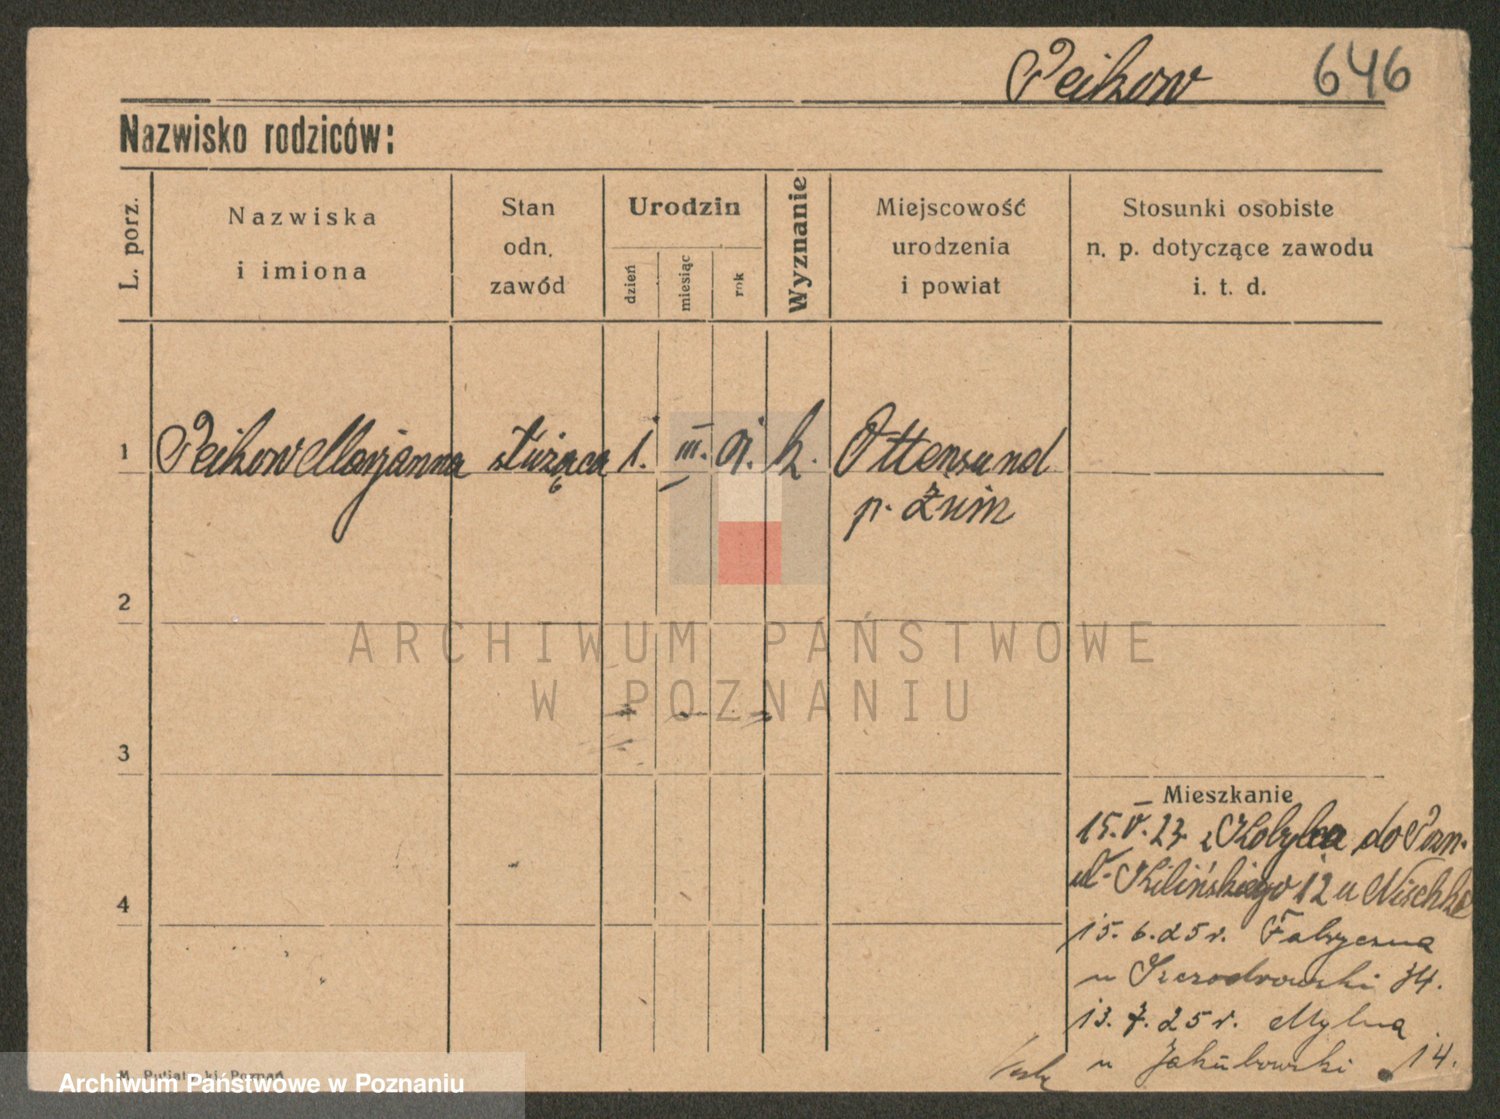 Peikow 646
Nazwisko rodziców:
L. porz.
Nazwiska
i imiona
Stan
odn.
zawód
Urodzin
dzień
miesiąc
rok
Wyznanie
Miejscowość
urodzenia
i powiat
Stosunki osobiste
n. p. dotyczące zawodu
i. t. d.
1 Peikow Marjanna służąca 1. III. 01. k. Ottensund
p. Żnin
2
ARCHIWUM PAŃSTWOWE
W POZNANIU
3
Mieszkanie
15.V.23. z do Pozn.
ul. Kilińskiego 12 u Nischke
4
15.6.25 r. Fabryczna
u Szczodrowski 34.
13.7.25 r. Mylna
u Jakubowski 14.
M. Putiatycki, Poznań
Archiwum Państwowe w Poznaniu